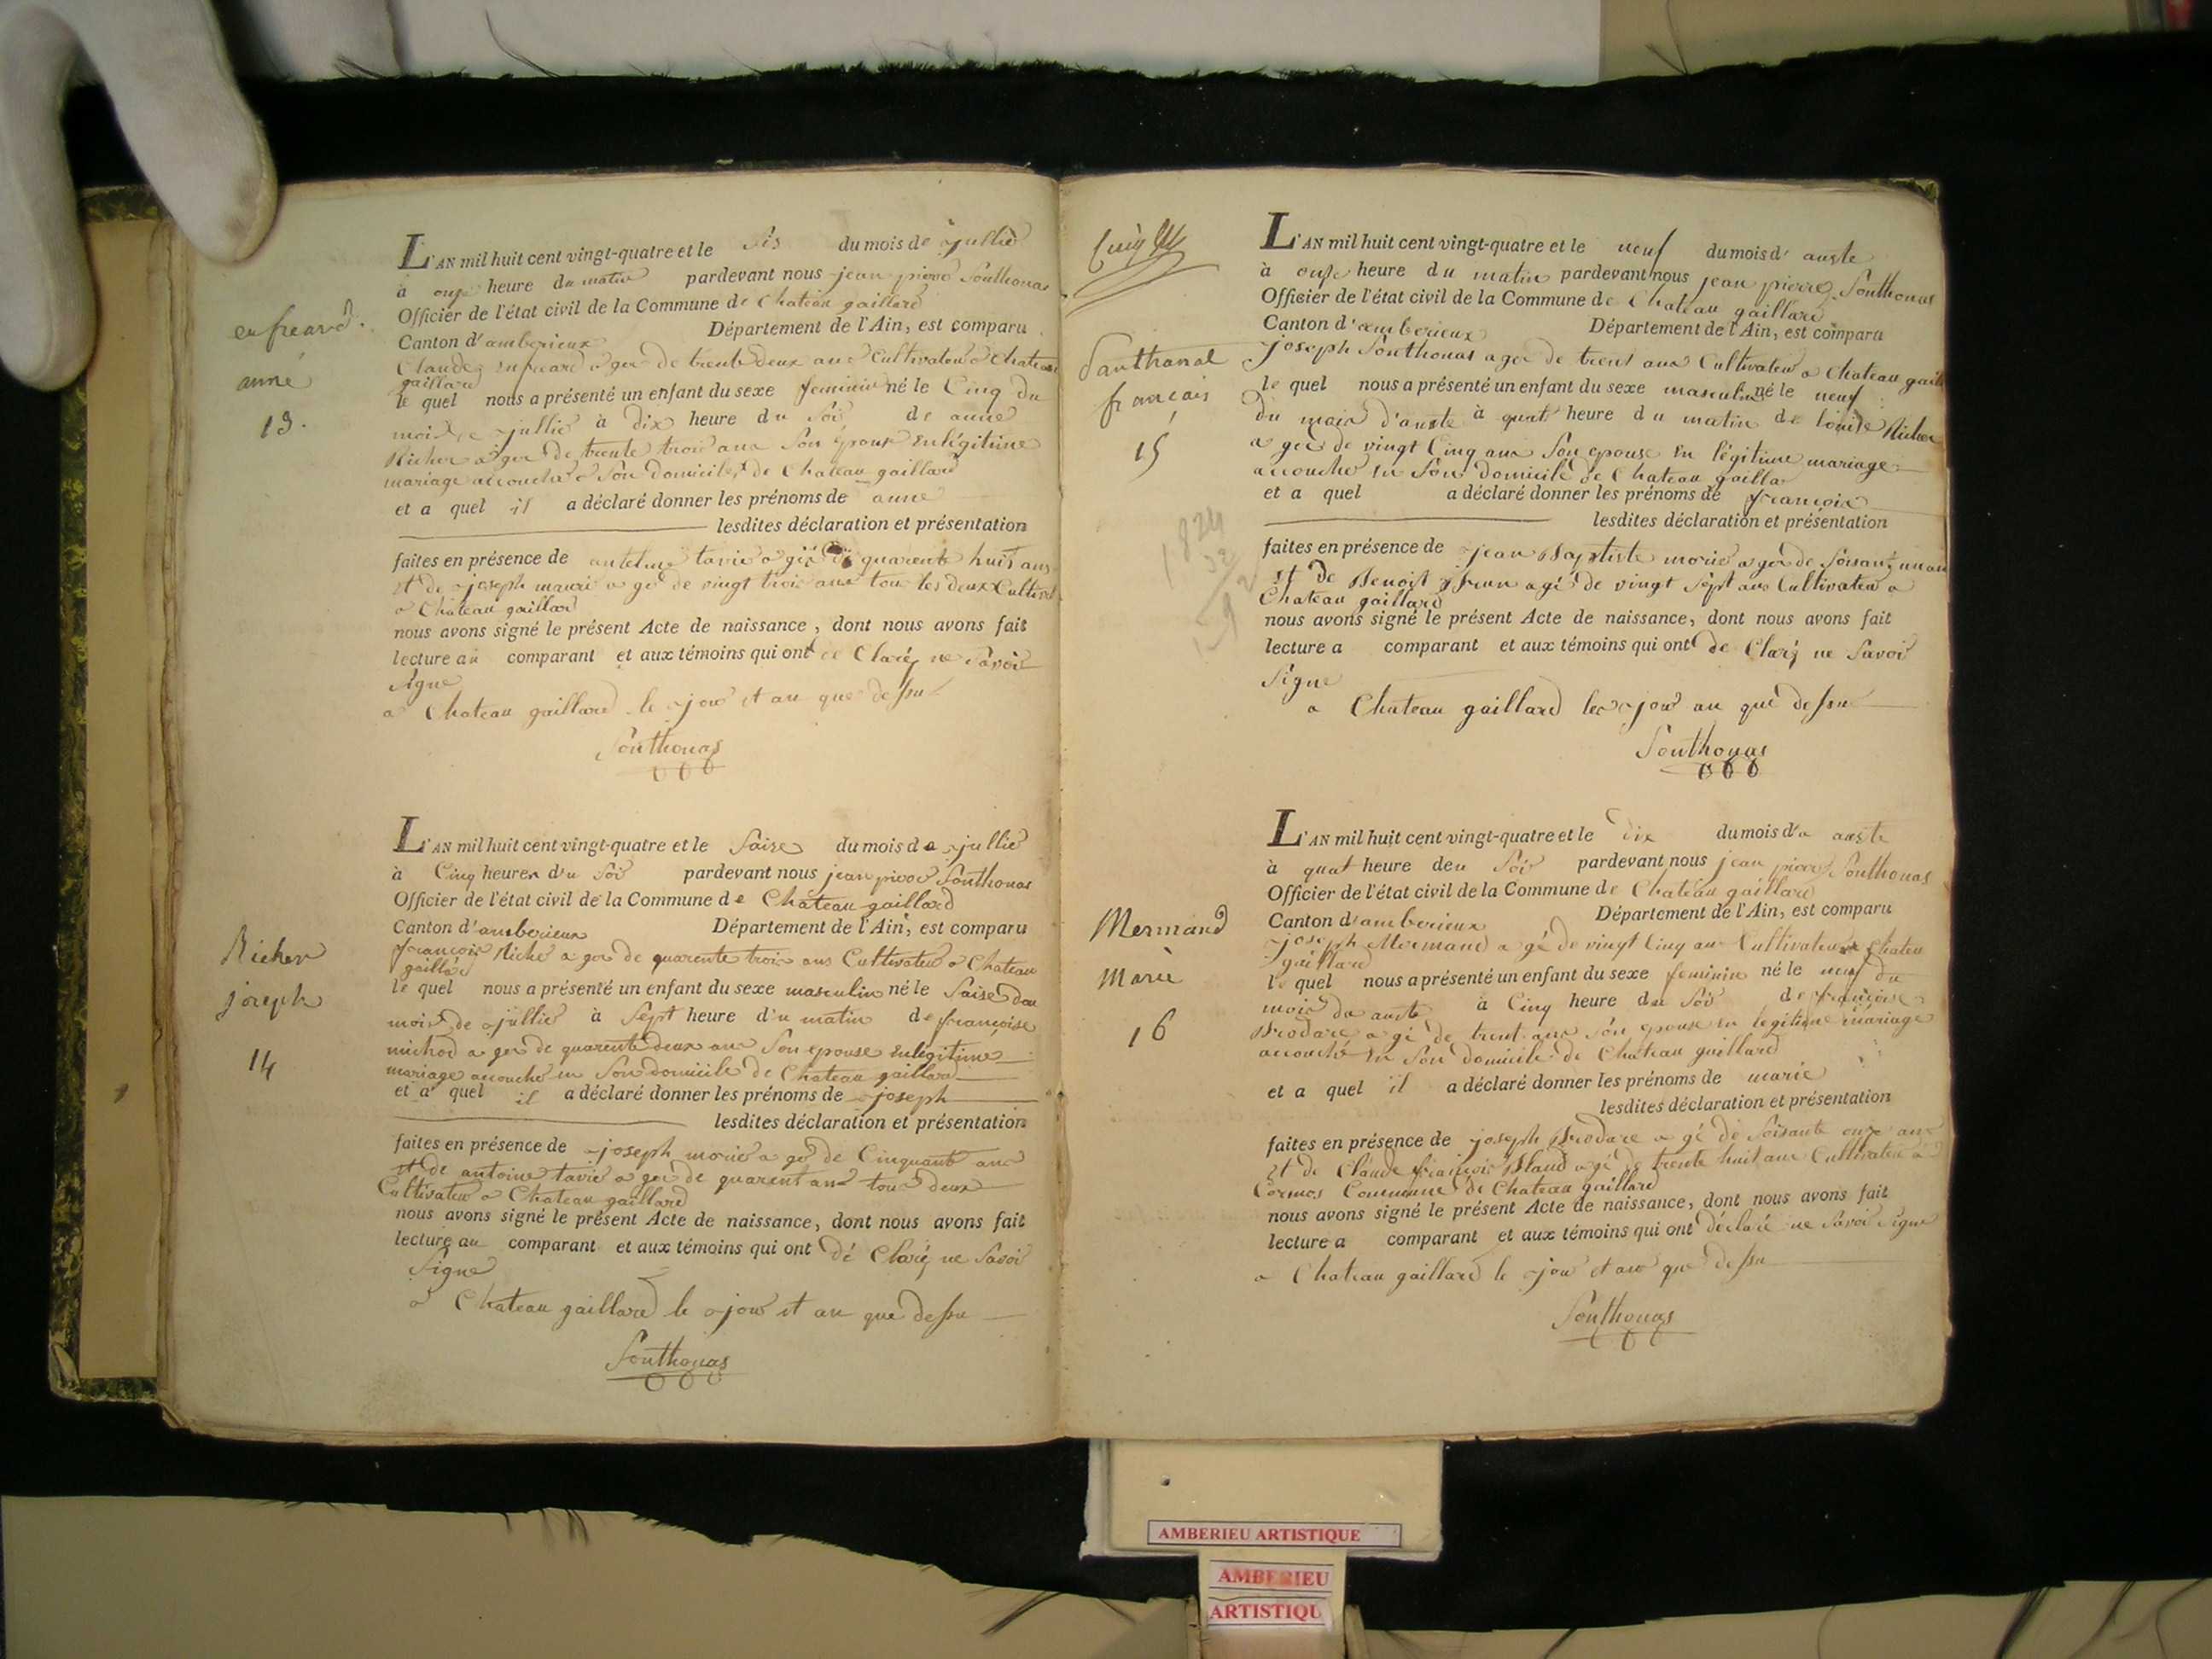 enfreard.
anne
13.
L'AN mil huit cent vingt-quatre et le sis du mois de jullié
à onze heure du matin pardevant nous jean pierre Southonas
Officier de l'état civil de la Commune de Chateau gaillard
Canton d'amberieux Département de l'Ain, est comparu
Claude enfreard a gee de trente deux ans Cultivateur a Chateau
gaillard
le quel nous a présenté un enfant du sexe feminin né le Cinq du
mois de jullié à dix heure du soir de anne
Richer a gee de trente trois ans son epouse en légitime
mariage accouché a son domicile de Chateau gaillard
et a quel il a déclaré donner les prénoms de anne
lesdites déclaration et présentation
faites en présence de antelme tavié a gée de quarente huit ans
et de joseph maurié a gé de vingt trois ans tou les deux Cultivat
a Chateau gaillard
nous avons signé le présent Acte de naissance, dont nous avons fait
lecture au comparant et aux témoins qui ont de Claréz ne savoir
signe
a Chateau gaillard le jour et an que dessu
Southonas
Richer
joseph
14
L'AN mil huit cent vingt-quatre et le saise du mois de jullié
à Cinq heures du soir pardevant nous jean pierre Southonas
Officier de l'état civil de la Commune de Chateau gaillard
Canton d'amberieux Département de l'Ain, est comparu
françois Riché a gee de quarente trois ans Cultivateur a Chateau
gaillard
le quel nous a présenté un enfant du sexe masculin né le saise du
mois de jullié à sept heure du matin de françoise
michod a gee de quarente deux ans son epouse en legitime
mariage accouché en son domicile de Chateau gaillard
et a quel il a déclaré donner les prénoms de joseph
lesdites déclaration et présentation
faites en présence de joseph morié a gé de Cinquante ans
et de antoine tavié a gee de quarent ans tous deux
Cultivateur a Chateau gaillard
nous avons signé le présent Acte de naissance, dont nous avons fait
lecture au comparant et aux témoins qui ont dé Claréz ne savoir
signe
a Chateau gaillard le jour et an que dessu
Southonas
Santhonal
français
15
1824
32
L'AN mil huit cent vingt-quatre et le neuf du mois d' auste
à onze heure du matin pardevant nous jean pierre Southonas
Officier de l'état civil de la Commune de Chateau gaillard
Canton d'amberieux Département de l'Ain, est comparu
joseph Southonas a gee de trent ans Cultivateur a Chateau gaill
le quel nous a présenté un enfant du sexe masculin né le neuf
du mois d'auste à quat heure du matin de louise Richer
a geé de vingt Cinq ans son epouse en légitime mariage
accouché en son domicile de Chateau gailla
et a quel a déclaré donner les prénoms de françois
lesdites déclaration et présentation
faites en présence de jean Baptiste morié a gee de soisant un an
et de Benoit Brun a gé de vingt sept ans Cultivateu a
Chateau gaillard
nous avons signé le présent Acte de naissance, dont nous avons fait
lecture a comparant et aux témoins qui ont de Claréz ne savoir
signe
a Chateau gaillard les jour an que dessu
Southonas
Mermand
Marie
16
L'AN mil huit cent vingt-quatre et le dix du mois d'a auste
à quat heure deu soir pardevant nous jean pierre Southonas
Officier de l'état civil de la Commune de Chateau gaillard
Canton d'amberieux Département de l'Ain, est comparu
joseph Mermand a gé de vingt Cinq an Cultivateur a Chateu
gaillard
le quel nous a présenté un enfant du sexe feminin né le neuf du
mois du auste à Cinq heure du soir de françoise
Brodare a gé de trent ans son epouse en legitime mariage
accouché en son domicile de Chateau gaillard
et a quel il a déclaré donner les prénoms de marie
lesdites déclaration et présentation
faites en présence de joseph Brodare a gé de soisante onze ans
et de Claude françois Bland a gé de trente huit ans Cultivateu a
Cormos Commune de Chateau gaillard
nous avons signé le présent Acte de naissance, dont nous avons fait
lecture a comparant et aux témoins qui ont déclaré ne savoir signe
a Chateau gaillard le jour et an que dessu
Southonas
AMBERIEU ARTISTIQUE
AMBERIEU
ARTISTIQU